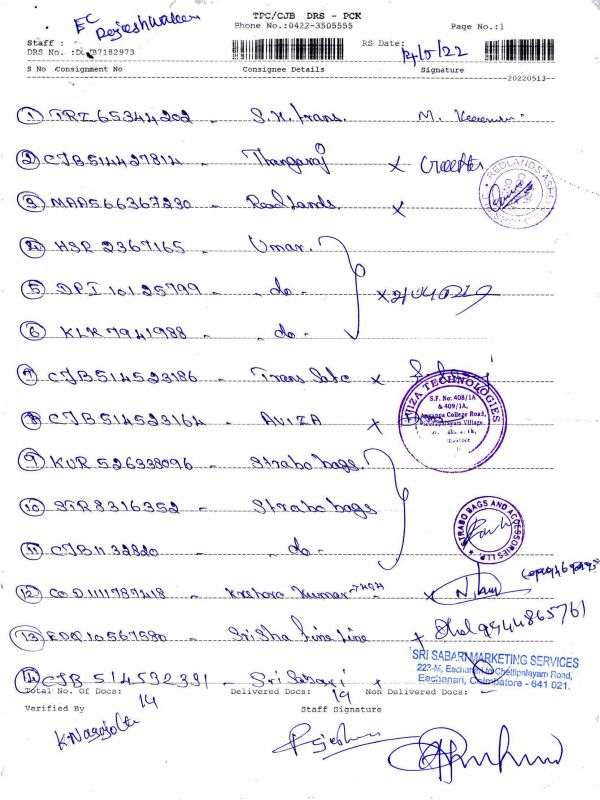 EC
Rejeshwaken
TPC/CJB DRS - PCK
Phone No.:0422-3505555
Page No.:1
Staff :
RS Date:
14/5/22
DRS No. :
7182973
S No Consignment No
Consignee Details
Signature
20220513
1 TRZ 65344202 - S.K. trans.
2 CJB514427814 - Thangaraj x
3 MAA566367230 - Redlands. x
REDLANDS ASHL
4 HSR 2367165 - Umar.
5 DPI 10125799 - do - x
6 KLR 7941988 - do -
7 CJB514523186 - Trans Safe x
8 CJB514523164 - AVIZA x
TECHNOLOGIES
S.F. No: 408/1A
& 409/1A,
College Road,
Village,
9 KUR 526338096 - Strabo bags.
10 STR8316352 - Strabo bags
STRABO BAGS AND ACCESSORIES LLP
11 CJB1132820 - do -
12 COD1111787418 - Kumar x
13 EDQ10567580 - Sri Sha Fine Line x 9944865761
14 CJB 514532391 - Sri Sabari x
SRI SABARI MARKETING SERVICES
222-M, Eachanari to Chettipalayam Road,
Eachanari, Coimbatore - 641 021.
Total No. Of Docs: 14
Delivered Docs: 14
Non Delivered Docs:
Verified By
Staff Signature